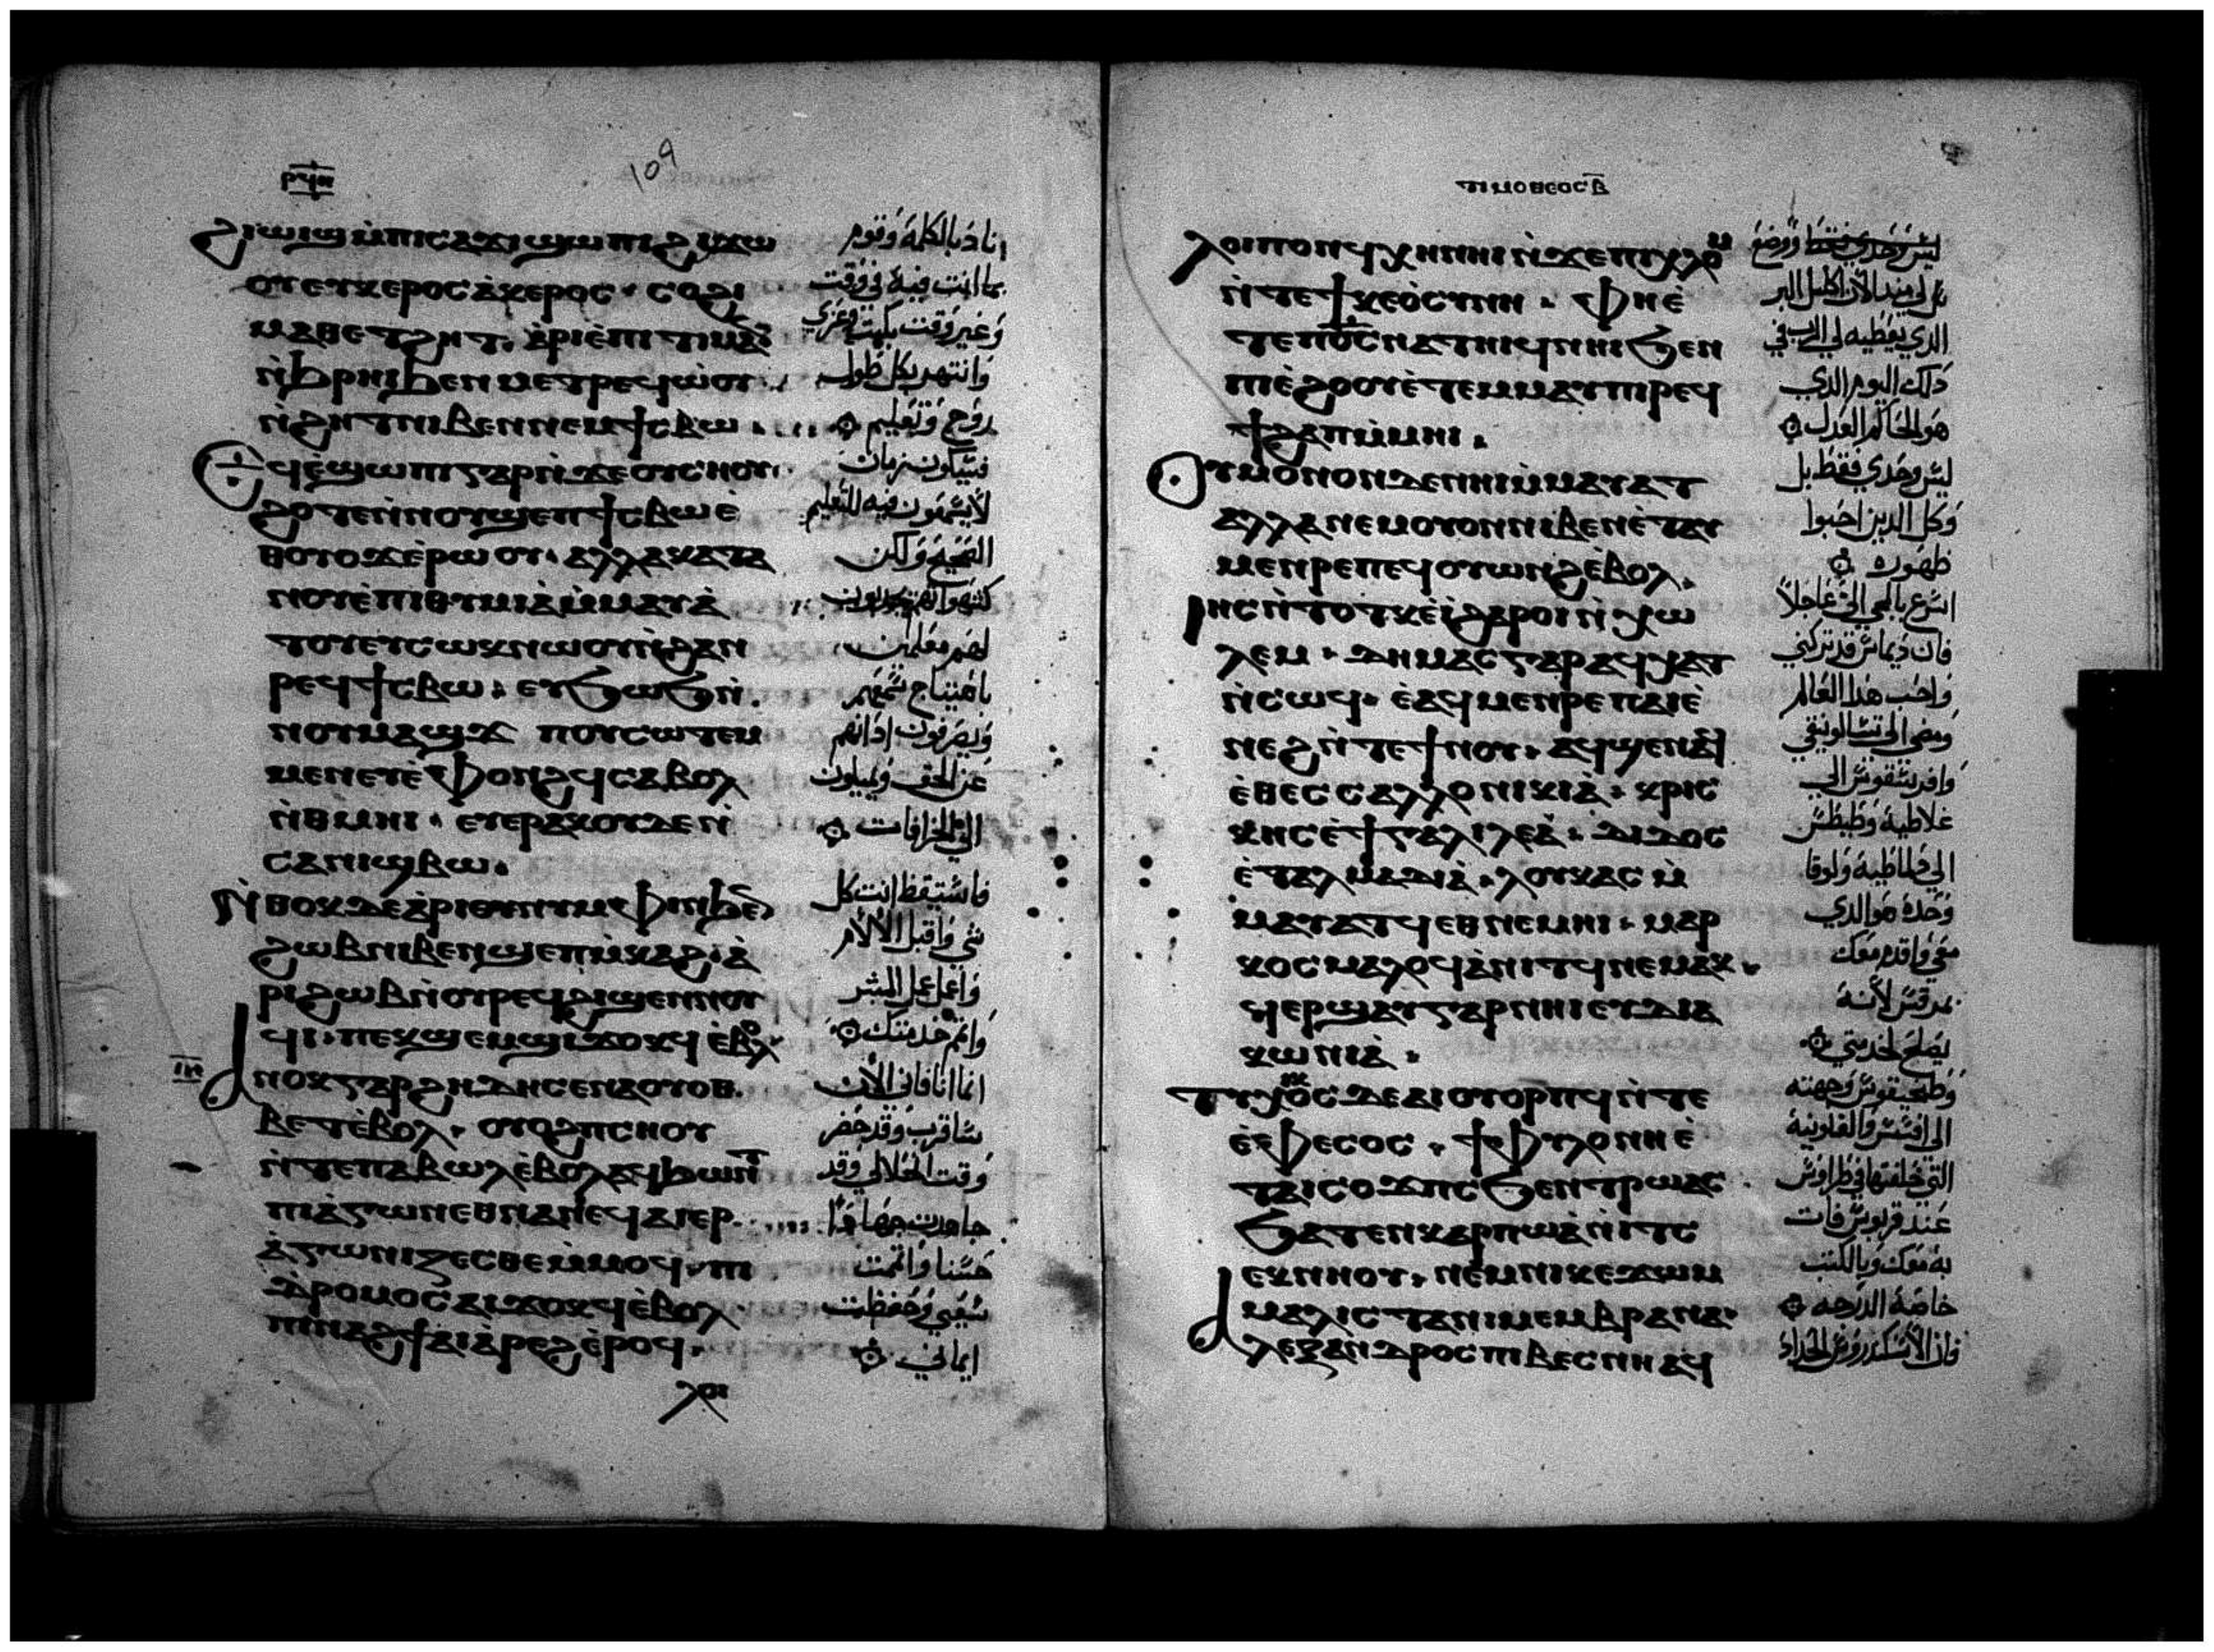 ⲣϥⲏ
109
ϩⲓⲱⲓϣ ⲙ̀ⲡⲓⲥⲁϫⲓ ϣⲱⲡⲓ ϩⲓϫⲱ
ⲟⲩⲉⲩⲕⲉⲣⲟⲥ ⲁ̀ⲕⲉⲣⲟⲥ · ⲥⲟϩⲓ
ⲙⲁⲑⲉⲧϩⲏⲧ · ⲁ̀ⲣⲓⲉ̀ⲡⲓⲧⲓⲙⲁⲛ
ⲛ̀ϧⲣⲏⲓ ϧⲉⲛ ⲙⲉⲧⲣⲉϥⲱ̀ⲟⲩ
ⲛ̀ϩⲏⲧ ⲛⲓⲃⲉⲛ ⲛⲉⲙ ϯⲥⲃⲱ
ⲉϥⲉ̀ϣⲱⲡⲓ ⲅⲁⲣ ⲛ̀ϫⲉ ⲟⲩⲥⲛⲟⲩ
ϩⲟⲧⲉ ⲛ̀ⲛⲟⲩϣⲉⲡ ϯⲥⲃⲱ ⲉ̀
ⲑⲟⲩⲟϫ ⲉ̀ⲣⲱⲟⲩ · ⲁⲗⲗⲁ ⲕⲁⲧⲁ
ⲛⲟⲩⲉ̀ⲡⲓⲑⲩⲙⲓⲁ̀ ⲙ̀ⲙⲁⲩⲁ̀
ⲧⲟⲩ ⲉⲩⲥⲱⲕ ⲛⲱⲟⲩ ⲛ̀ϩⲁⲛ
ⲣⲉϥϯⲥⲃⲱ · ⲉⲩϧⲱϧ ⲛ̀
ⲛⲟⲩⲙⲁϣϫ ⲡⲟⲩⲥⲱⲧⲉⲙ
ⲙⲉⲛ ⲉⲩⲉ̀ⲫⲟⲛϩϥ ⲥⲁⲃⲟⲗ
ⲛ̀ⲑⲙⲏⲓ · ⲉⲩⲉⲣⲁⲕⲟⲩ ⲇⲉ ⲛ̀
ⲥⲁ ⲛⲓϣⲃⲱ ·
ⲛ̀ⲑⲟⲕ ⲇⲉ ⲁ̀ⲣⲓⲛⲩⲙⲫⲓⲛ ϧⲉⲛ
ϩⲱⲃ ⲛⲓⲃⲉⲛ ϣⲉⲡ ⲙ̀ⲕⲁϩ · ⲁ̀
ⲣⲓ ϩⲱⲃ ⲛ̀ⲟⲩⲣⲉϥϩⲓϣⲉⲛⲛⲟⲩ
ϥⲓ · ⲡⲉⲕϣⲉⲙϣⲓ ϫⲟⲕϥ ⲉ̀ⲃⲟⲗ
ⲓⲏ
ⲁⲛⲟⲕ ⲅⲁⲣ ϩⲏⲇⲏ ⲥⲉⲛⲁⲟⲩⲟⲑ
ⲃⲉⲧ ⲉ̀ⲃⲟⲗ · ⲟⲩⲟϩ ⲡⲥⲛⲟⲩ
ⲛ̀ⲧⲉ ⲡⲁⲃⲱⲗ ⲉ̀ⲃⲟⲗ ⲁϥϧⲱⲛⲧ
ⲡⲓⲁ̀ⲅⲱⲛ ⲉⲑⲛⲁⲛⲉϥ ⲁⲓⲉⲣ
ⲁ̀ⲅⲱⲛⲓⲍⲉⲥⲑⲉ ⲙ̀ⲙⲟϥ · ⲡⲓ
ⲇⲣⲟⲙⲟⲥ ⲁⲓϫⲟⲕϥ ⲉ̀ⲃⲟⲗ
ⲡⲓⲛⲁϩϯ ⲁⲓⲁ̀ⲣⲉϩ ⲉ̀ⲣⲟϥ ·
ⲗⲟⲓ
اناد بالكلمة وقوم
بما انت فيه في وقت
وغير وقت بكت وعزي
وانتهر بكل طول
روح وتعليم
فسيكون زمان
لا يسمعون فيه للتعليم
الصحيح ولكن
لهم معلمين
ويصرفون اذانهم
عن الحق ويميلون
الى الخرافات
فاستيقظ انت كل
شي واقبل الالام
واعمل عمل المبشر
واتم خدمتك
انما انا فاني الان
وقت انحلالي وقد
حسنا واتممت
سعيي وحفظت
ايماني
ⲧⲓⲙⲟⲑⲉⲟⲥ ⲃ̄
ⲗⲟⲓⲡⲟⲛ ϥⲭⲏ ⲛⲏⲓ ⲛ̀ϫⲉ ⲡⲓⲭⲗⲟⲙ
ⲛ̀ⲧⲉ ϯⲕⲉⲟ̀ⲥⲩⲛⲏ · ⲫⲏ ⲉ̀
ⲧⲉ ⲡⲟ̄ⲥ̄ ⲛⲁⲧⲏⲓϥ ⲛⲏⲓ ϧⲉⲛ
ⲡⲓⲉ̀ϩⲟⲟⲩ ⲉ̀ⲧⲉⲙⲙⲁⲩ ⲡⲓⲣⲉϥ
ϯϩⲁⲡ ⲙ̀ⲙⲏⲓ ·
ⲟⲩ ⲙⲟⲛⲟⲛ ⲇⲉ ⲛⲏⲓ ⲙ̀ⲙⲁⲩⲁⲧ
ⲁⲗⲗⲁ ⲛⲉⲙ ⲟⲩⲟⲛ ⲛⲓⲃⲉⲛ ⲉ̀ⲧⲁⲩ
ⲙⲉⲛⲣⲉ ⲡⲉϥⲟⲩⲱⲛϩ ⲉ̀ⲃⲟⲗ ·
ⲓⲏⲥ ⲛ̀ⲧⲟⲧⲕ ⲉ̀ⲓ̀ ϩⲁⲣⲟⲓ ⲛ̀ⲭⲱ
ⲗⲉⲙ · ⲇⲏⲙⲁⲥ ⲅⲁⲣ ⲁϥⲭⲁⲧ
ⲛ̀ⲥⲱϥ · ⲉ̀ⲁϥⲙⲉⲛⲣⲉ ⲡⲁⲓⲉ̀
ⲛⲉϩ ⲛ̀ⲧⲉ ϯⲛⲟⲩ · ⲁϥϣⲉⲛⲁϥ
ⲉ̀ⲑⲉⲥⲥⲁⲗⲗⲟⲛⲓⲕⲓⲁ̀ · ⲕⲣⲓⲥ
ⲕⲏⲥ ⲉ̀ϯⲅⲁⲗⲓⲗⲉⲁ̀ · ⲇⲓⲇⲟⲥ
ⲉ̀ⲧⲁⲗⲙⲁⲇⲓⲁ̀ · ⲗⲟⲩⲕⲁⲥ ⲙ̀
ⲙⲁⲩⲁⲧϥ ⲉⲑⲛⲉⲙⲏⲓ · ⲙⲁⲣ
ⲕⲟⲥ ⲙⲁⲗⲟϥ ⲁ̀ⲛⲓⲧϥ ⲛⲉⲙⲁⲕ ·
ϥⲉⲣϣⲁⲩ ⲅⲁⲣ ⲛⲏⲓ ⲉⲩⲇⲓⲁ
ⲕⲱⲛⲓⲁ̀ ·
ⲧⲩⲭⲓⲕⲟⲥ ⲇⲉ ⲁⲓⲟⲩⲟⲣⲡϥ ⲛ̀ⲧⲉ
ⲉ̀ⲉ̀ⲫⲉⲥⲟⲥ · ϯⲫⲩⲗⲟⲛⲏ ⲉ̀
ⲧⲁⲓⲥⲟϫⲡⲥ ϧⲉⲛ ⲧⲣⲱⲁⲥ
ϧⲁⲧⲉⲛ ⲕⲁⲣⲡⲱ ⲁ̀ⲛⲓⲧⲥ
ⲉⲕⲛⲏⲟⲩ · ⲛⲉⲙ ⲛⲓⲕⲉϫⲱⲙ
ⲙⲁⲗⲓⲥⲧⲁ ⲛⲓⲙⲉⲙⲃⲣⲁⲛⲁ ·
ⲁⲗⲉⲝⲁⲛⲇⲣⲟⲥ ⲡⲓⲃⲉⲥⲛⲏⲧ ⲁϥ
لي منذ الان اكليل البر
الذي يعطيه لي الرب في
ذلك اليوم الذي
هو الحاكم العدل
ليس وحدي فقط بل
وكل الدين احبوا
ظهوره
اسرع بالمجي الي عاجلا
فان ديماس قد تركني
واحب هدا العالم
ومضى الى تسالونيقي
وافريسقوس الى
غلاطية وطيطس
الى دلماطية ولوقا
وحده هو الذي
معي واقدم معك
بمرقس لانه
يصلح لخدمتي
وطيخيقوس وجهته
الى افسس والفلونية
التي خلفتها في طراوس
عند قربوس فات
به معك وبالكتب
خاصة الدرجه
فان الاسكندروس الحداد